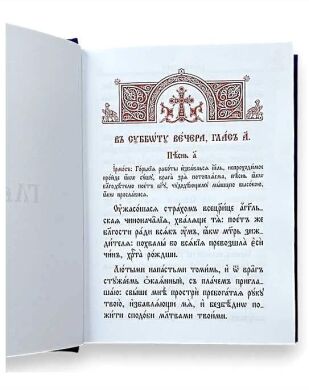 въ сꙋббѡ́тꙋ ве́чера, гла́съ а҃.
Пѣ́снь а҃
І҆рмо́съ: Го́рькїѧ рабо́ты и҆зба́вльсѧ і҆и҃ль, непроходи́мое
про́йде ꙗ҆́кѡ сꙋ́шꙋ, врага̀ зрѧ̀ потоплѧ́ема, пѣ́снь ꙗ҆́кѡ
бл҃годѣ́телю пое́тъ бг҃ꙋ, чꙋдодѣ́ющемꙋ мы́шцею высо́кою,
ꙗ҆́кѡ просла́висѧ.
Оу҆жасо́шасѧ стра́хомъ всещ҃рїе а҆́гг҃ль-
скаѧ чинонача̑лїѧ, хва́лѧще тѧ̀: пое́тъ же
бл҃гости ра́ди всѧ́къ оу҆́мъ, ꙗ҆́кѡ мт҃рь зижди́-
телѧ: похвалы̑ бо всѧ̑кїѧ превозшла̀ є҆сѝ
чи́нъ, хрⷭ҇та̀ ро́ждши.
Лю́тыми напа́стьми томи́мь, и҆ ѿ вра̑гъ
стꙋжа́емь ѻ҆каѧ́нный, съ пла́чемъ пригла-
ша́ю: свы́ше мнѣ̀ прострѝ пребога́тꙋю рꙋ́кꙋ
твою̀, и҆збавлѧ́ющи мѧ̀, и҆ безбѣ́днѡ по-
жи́ти сподо́би мл҃твами твои́ми.